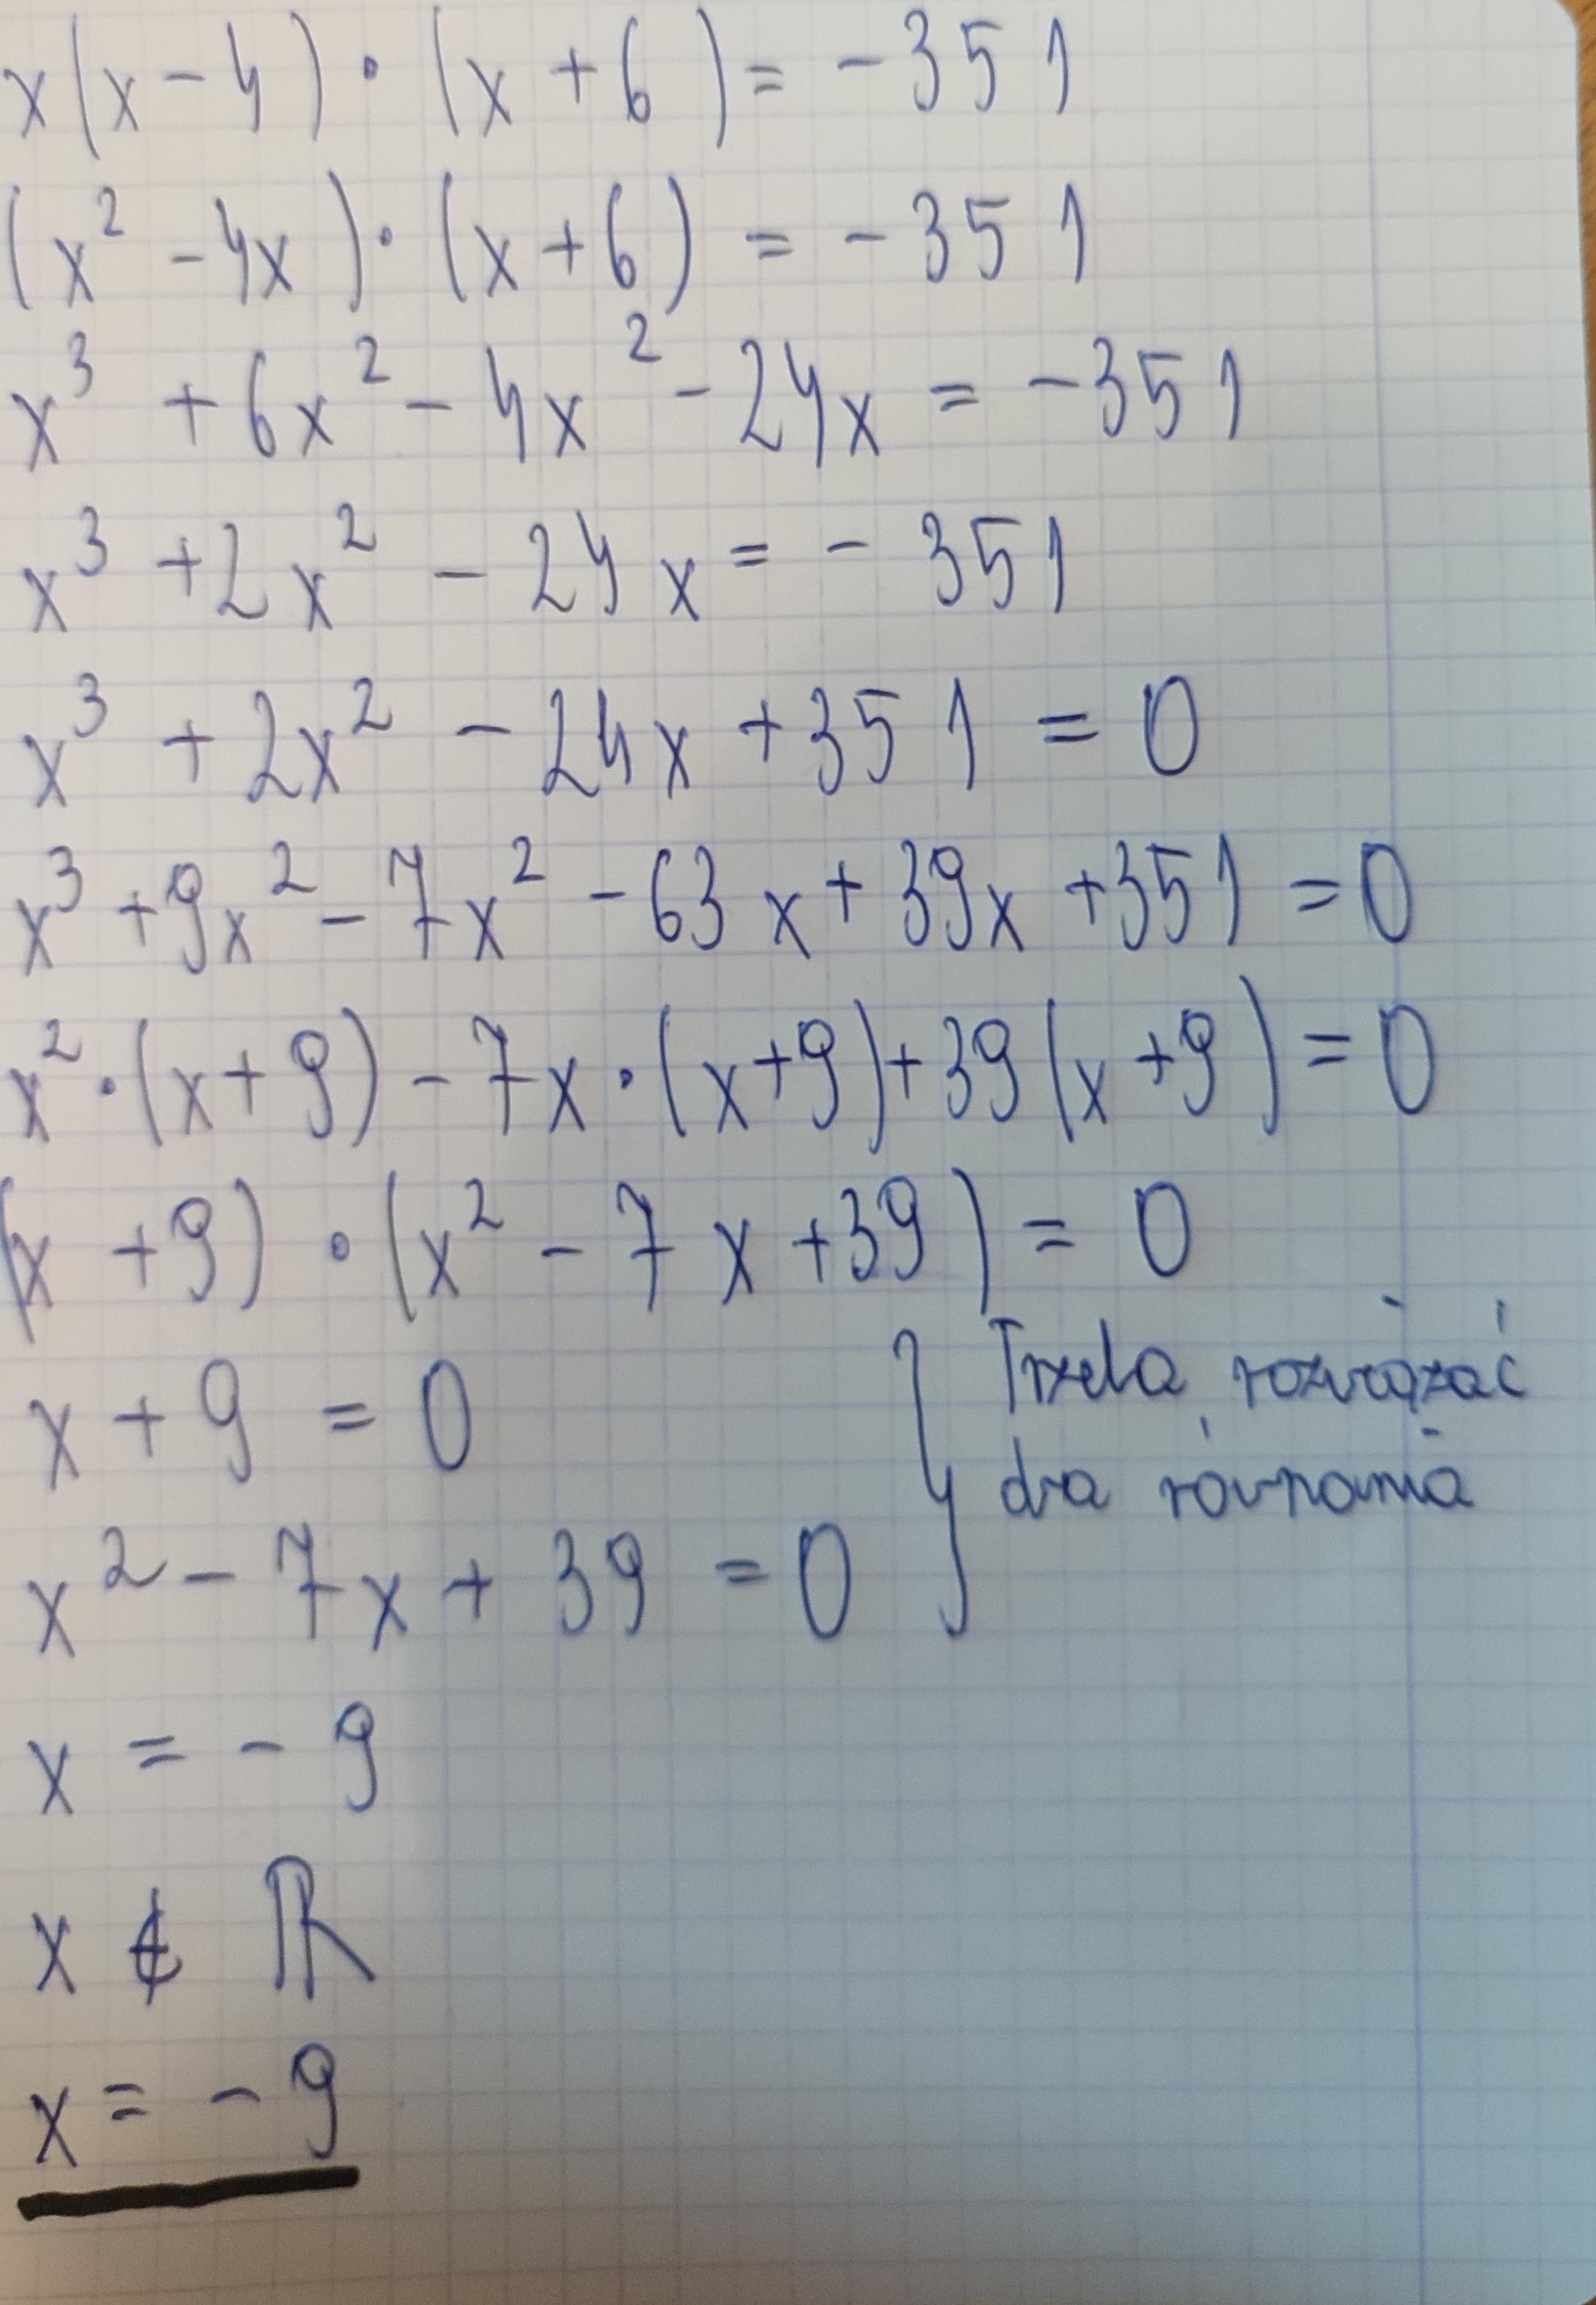 x(x-4)·(x+6)=-351
(x²-4x)·(x+6)=-351
x³+6x²-4x²-24x=-351
x³+2x²-24x=-351
x³+2x²-24x+351=0
x³+9x²-7x²-63x+39x+351=0
x²·(x+9)-7x·(x+9)+39(x+9)=0
(x+9)·(x²-7x+39)=0
x+9=0
x²-7x+39=0
} Trzeba rozwiązać
dwa równania
x=-9
x∉ℝ
x=-9